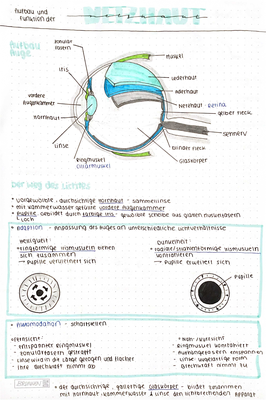 Aufbau und
Funktion der
NETZHAUT
Aufbau
Auge
zonular
fasern
Muskel
iris
Lederhaut
Aderhaut
vordere
Augenkammer
Netzhaut
gelber Fleck
Hornhaut
Sehnerv
Linse
blinder Fleck
Ringmuskel
Glaskörper
Der Weg des Lichtes
vorgewölbte, durchsichtige Hornhaut - Sammellinse
mit Kammerwasser gefüllte vordere Augenkammer
Pupille gebildet durch farbige Iris
Loch
Adaption - Anpassung des Auges an unterschiedliche Lichtverhältnisse
Helligkeit:
Dunkelheit:
ringförmige Irismuskeln ziehen
sich zusammen
→ Pupille verkleinert sich
→ Pupille erweitert sich
Pupille
Akkomodation - Scharfsehen
Fernsicht:
entspannter Ringmuskel
Zonulafasern gestrafft
Linse wird in die Länge gezogen und flacher
ihre Brechkraft nimmt ab
Ringmuskel kontrahiert
Aufhängefasern entspannen
Brechkraft nimmt zu
der durchsichtige, gallertige Glaskörper - bildet zusammen
mit Hornhaut, Kammerwasser & Linse den lichtbrechenden Apparat